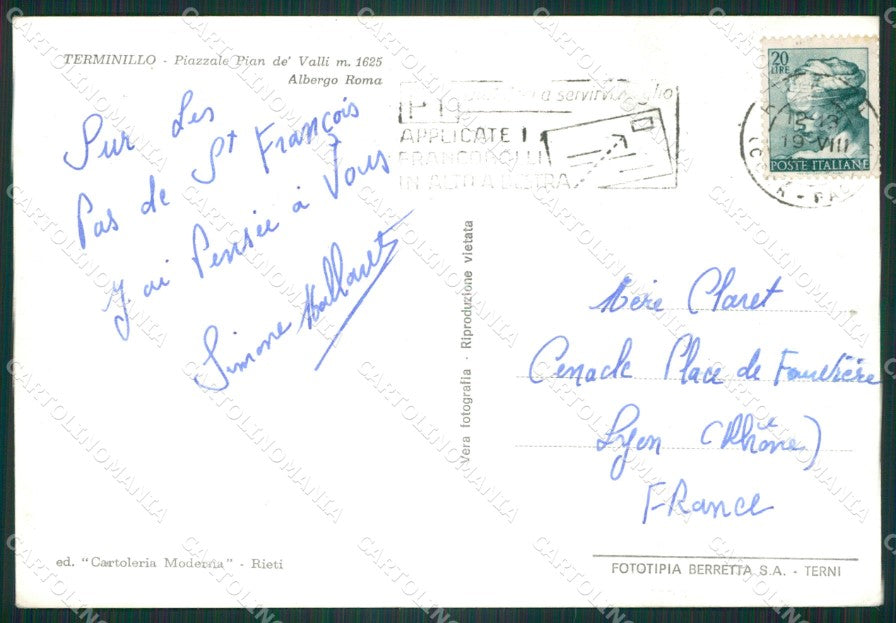 TERMINILLO - Piazzale Pian de' Valli m. 1625
Albergo Roma
Sur Les
Pas de St François
J'ai Pensée à Vous
Simone
a servirvi meglio
APPLICATE I
FRANCOBOLLI
IN ALTO A DESTRA
20
LIRE
19 VIII
POSTE ITALIANE
Vera fotografia - Riproduzione vietata
Mère Claret
Cenacle Place de Fourvière
Lyon (Rhône)
FRance
ed. "Cartoleria Moderna" - Rieti
FOTOTIPIA BERRETTA S.A. - TERNI
CARTOLINOMANIA